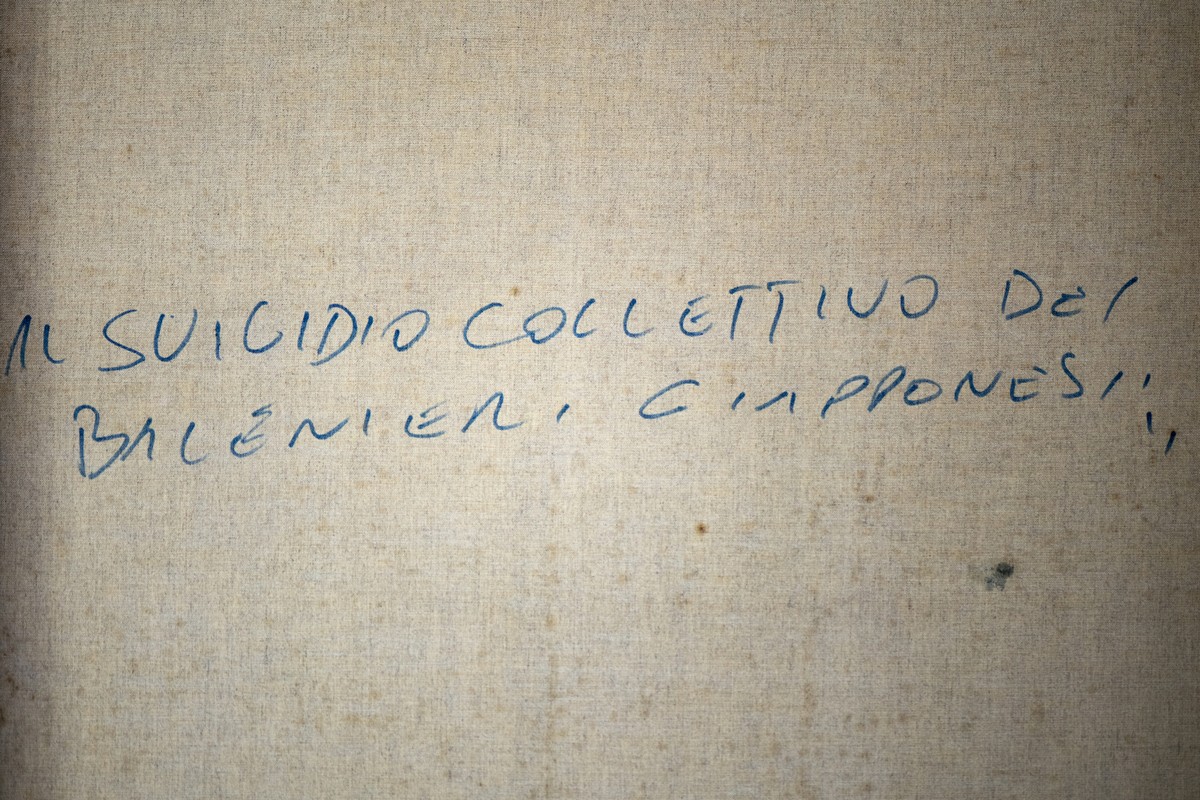 IL SUICIDIO COLLETTIVO DEI
BALENIERI GIAPPONESI!,